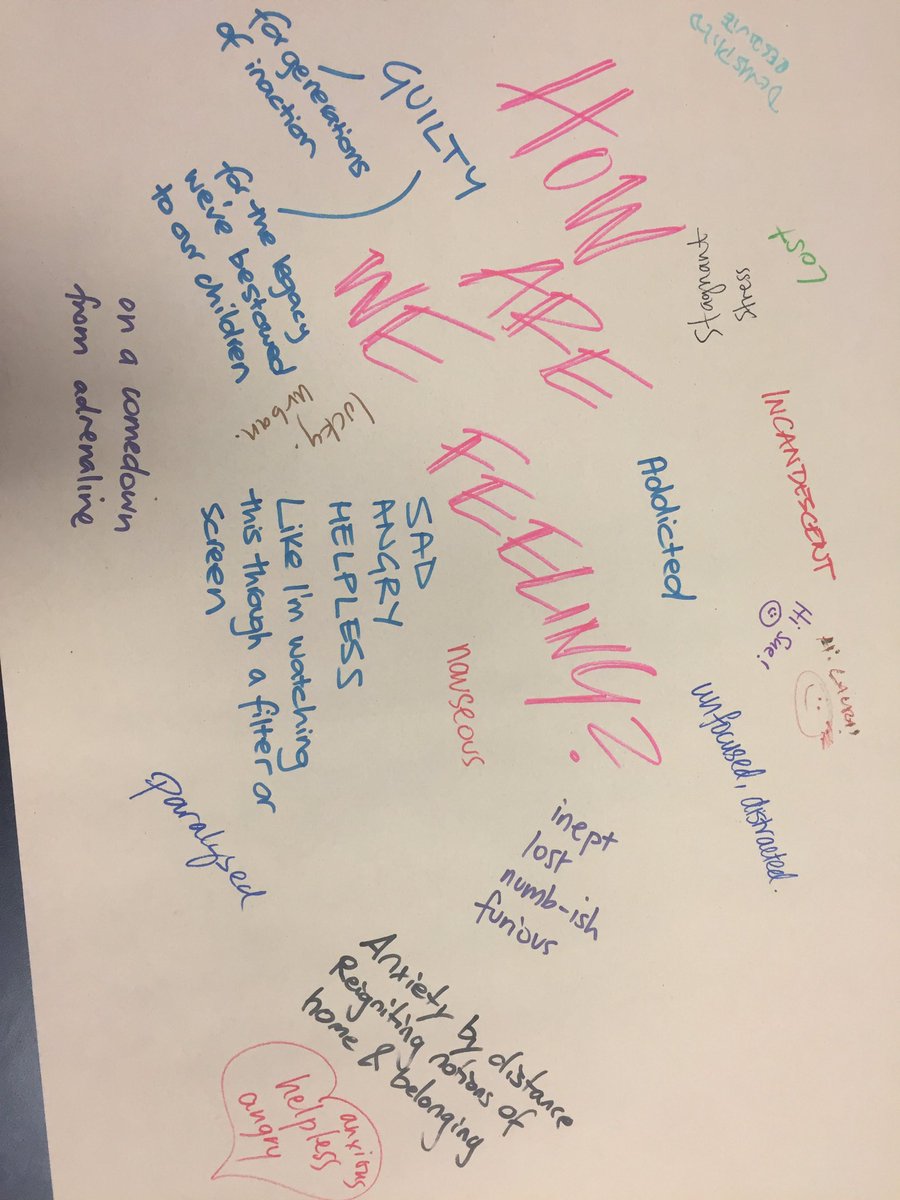 HOW
ARE
WE
FEELING?
GUILTY
for generations
of inaction
for the legacy
we've bestowed
to our children
on a comedown
from adrenaline
lucky.
urban.
SAD
ANGRY
HELPLESS
Like I'm watching
this through a filter or
screen
Lost
Stress
Stagnant
INCANDESCENT
Addicted
Hi Sue!
Hi
unfocused, distracted.
nauseous
inept
lost
numb-ish
furious
paralysed
Anxiety by distance
Reigniting notions of
home & belonging
anxious
helpless
angry